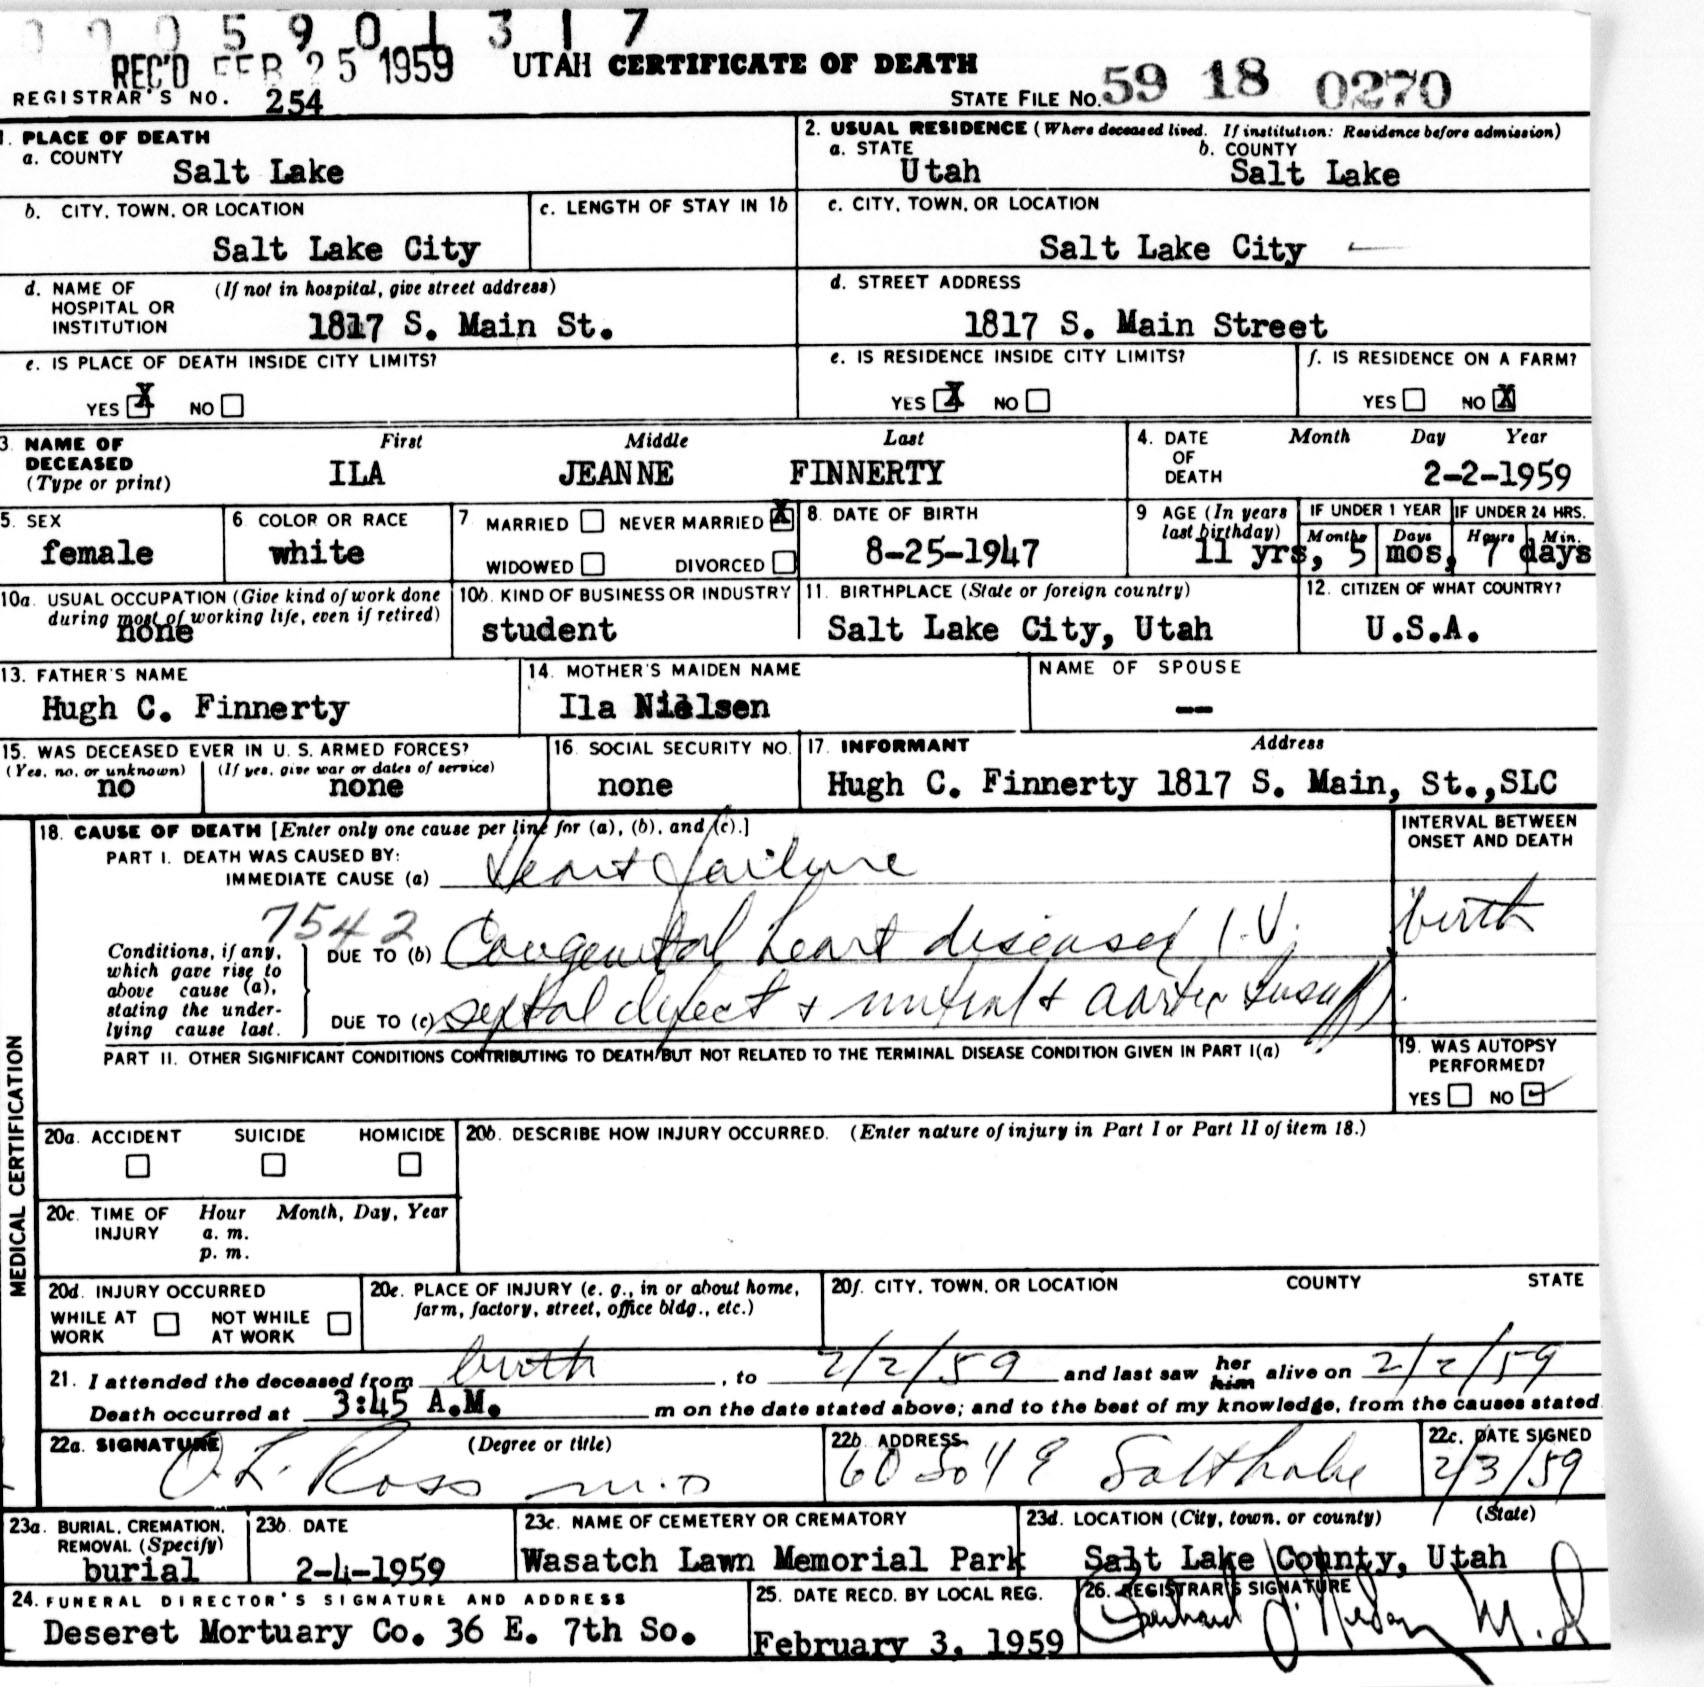 0 0 0 5 9 0 1 3 1 7
REC'D FEB 25 1959 UTAH CERTIFICATE OF DEATH
REGISTRAR'S NO. 254 STATE FILE NO. 59 18 0270
1. PLACE OF DEATH 2. USUAL RESIDENCE (Where deceased lived. If institution: Residence before admission)
a. COUNTY Salt Lake a. STATE Utah b. COUNTY Salt Lake
b. CITY, TOWN, OR LOCATION Salt Lake City c. LENGTH OF STAY IN 1b c. CITY, TOWN, OR LOCATION Salt Lake City
d. NAME OF HOSPITAL OR INSTITUTION (If not in hospital, give street address) 1817 S. Main St. d. STREET ADDRESS 1817 S. Main Street
e. IS PLACE OF DEATH INSIDE CITY LIMITS? e. IS RESIDENCE INSIDE CITY LIMITS? f. IS RESIDENCE ON A FARM?
YES X NO YES X NO YES NO X
3. NAME OF DECEASED (Type or print) First Middle Last 4. DATE OF DEATH Month Day Year
ILA JEANNE FINNERTY 2-2-1959
5. SEX 6 COLOR OR RACE 7 MARRIED NEVER MARRIED X 8. DATE OF BIRTH 9 AGE (In years last birthday) IF UNDER 1 YEAR IF UNDER 24 HRS.
Months Days Hours Min.
female white WIDOWED DIVORCED 8-25-1947 11 yrs, 5 mos, 7 days
10a. USUAL OCCUPATION (Give kind of work done during most of working life, even if retired) 10b. KIND OF BUSINESS OR INDUSTRY 11. BIRTHPLACE (State or foreign country) 12. CITIZEN OF WHAT COUNTRY?
none student Salt Lake City, Utah U.S.A.
13. FATHER'S NAME 14. MOTHER'S MAIDEN NAME NAME OF SPOUSE
Hugh C. Finnerty Ila Nielsen --
15. WAS DECEASED EVER IN U. S. ARMED FORCES? 16. SOCIAL SECURITY NO. 17. INFORMANT Address
(Yes, no, or unknown) (If yes, give war or dates of service)
no none none Hugh C. Finnerty 1817 S. Main, St.,SLC
MEDICAL CERTIFICATION
18. CAUSE OF DEATH [Enter only one cause per line for (a), (b), and (c).] INTERVAL BETWEEN ONSET AND DEATH
PART I. DEATH WAS CAUSED BY:
IMMEDIATE CAUSE (a) Heart failure
7542
Conditions, if any, which gave rise to above cause (a), stating the underlying cause last.
DUE TO (b) Congenital heart disease (I.V. birth
DUE TO (c) septal defect + mitral + aortic Insuff).
PART II. OTHER SIGNIFICANT CONDITIONS CONTRIBUTING TO DEATH BUT NOT RELATED TO THE TERMINAL DISEASE CONDITION GIVEN IN PART I(a)
19. WAS AUTOPSY PERFORMED?
YES NO ✓
20a. ACCIDENT SUICIDE HOMICIDE 20b. DESCRIBE HOW INJURY OCCURRED. (Enter nature of injury in Part I or Part II of item 18.)
20c. TIME OF INJURY Hour Month, Day, Year
a. m.
p. m.
20d. INJURY OCCURRED 20e. PLACE OF INJURY (e. g., in or about home, farm, factory, street, office bldg., etc.) 20f. CITY, TOWN, OR LOCATION COUNTY STATE
WHILE AT WORK NOT WHILE AT WORK
21. I attended the deceased from birth, to 2/2/59 and last saw her him alive on 2/2/59
Death occurred at 3:45 A.M. m on the date stated above; and to the best of my knowledge, from the causes stated
22a. SIGNATURE (Degree or title) 22b. ADDRESS 22c. DATE SIGNED
O. L. Ross M.D 2/3/59
23a. BURIAL, CREMATION, REMOVAL (Specify) 23b. DATE 23c. NAME OF CEMETERY OR CREMATORY 23d. LOCATION (City, town, or county) (State)
burial 2-4-1959 Wasatch Lawn Memorial Park Salt Lake County, Utah
24. FUNERAL DIRECTOR'S SIGNATURE AND ADDRESS 25. DATE RECD. BY LOCAL REG. 26. REGISTRAR'S SIGNATURE
Deseret Mortuary Co. 36 E. 7th So. February 3, 1959 M.D